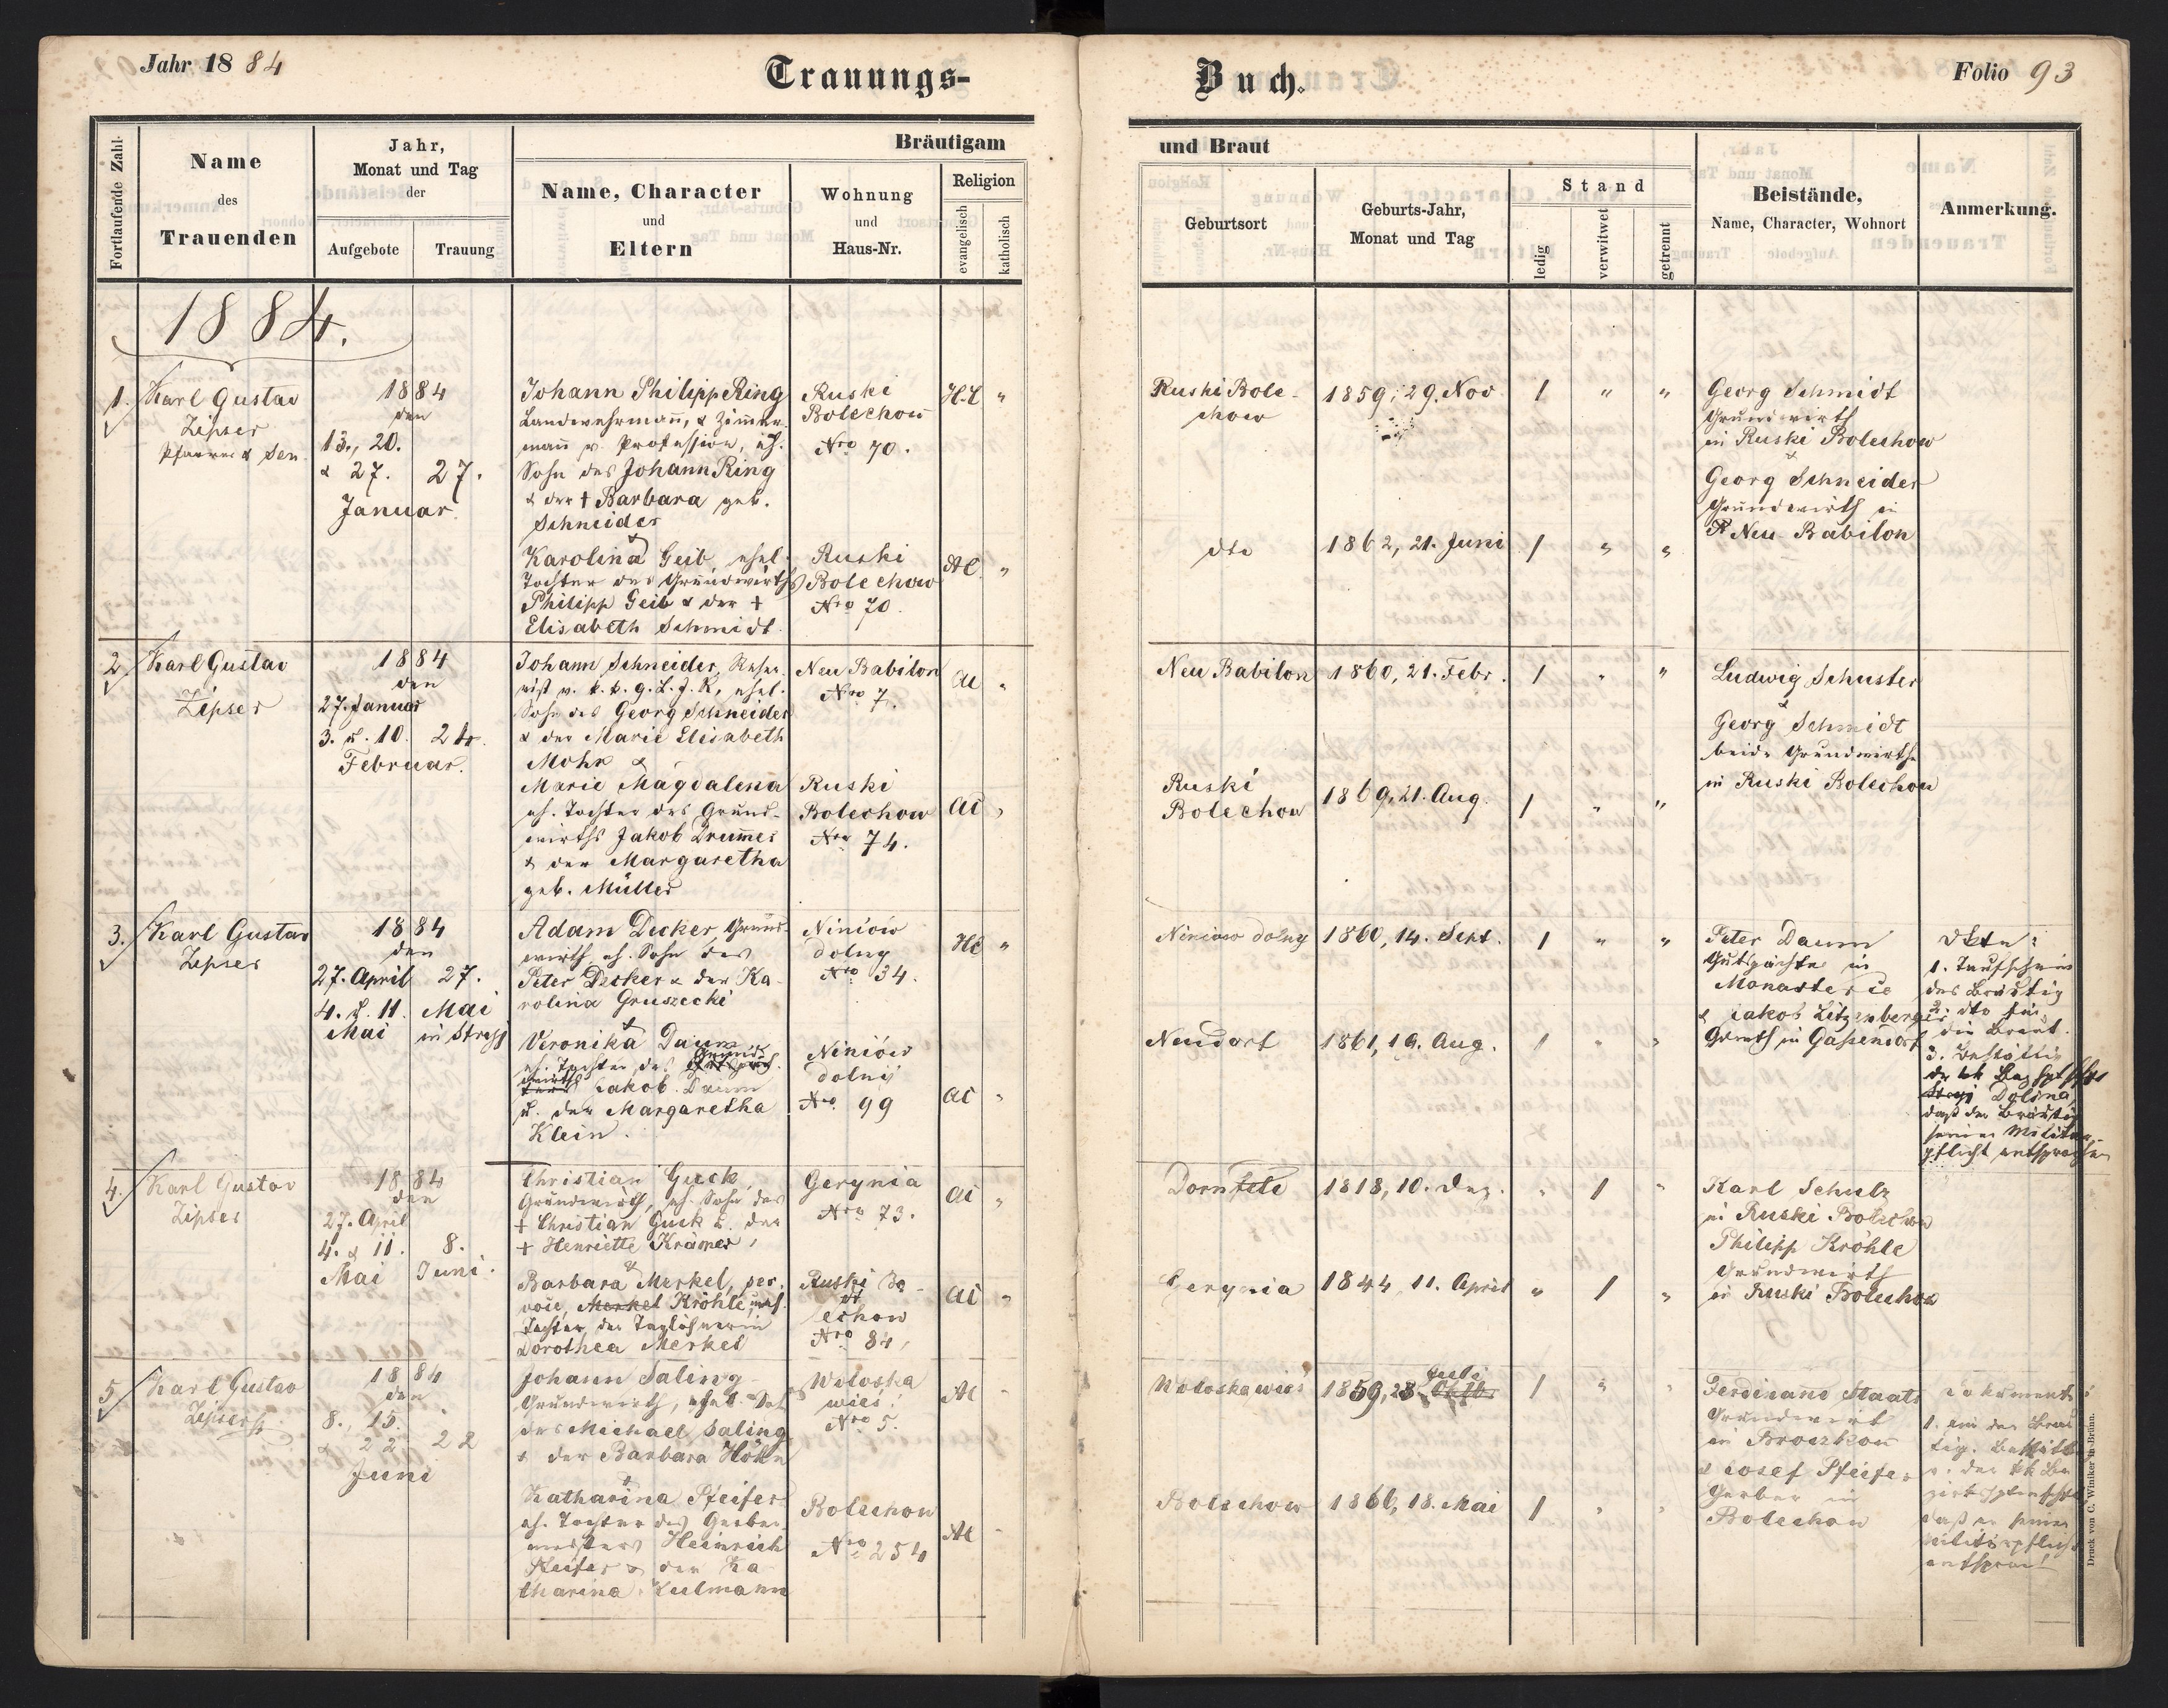 Jahr 18 84
Trauungs-
Buch.
Folio 93
Fortlaufende Zahl
Name
des
Trauenden
Jahr,
Monat und Tag
der
Aufgebote
Trauung
Bräutigam
Name, Character
und
Eltern
Wohnung
und
Haus-Nr.
Religion
evangelisch
katholisch
und Braut
Geburtsort
Geburts-Jahr,
Monat und Tag
Stand
ledig
verwitwet
getrennt
Beistände,
Name, Character, Wohnort
Anmerkung.
1884.
1.
Karl Gustav
Zipser
Pfarrer & Sen
1884
den
13., 20.
& 27.
27.
Januar.
Johann Philipp Ring
Landwehrmañ, & Zim̄er
mañ v. Profession, eh.
Sohn des Johann Ring
& der † Barbara geb.
Schneider
&
Karolina Geib, ehel.
Tochter des Grundwirths
Philipp Geib & der †
Elisabeth Schmidt.
Ruski
Bolechow
Nro 70.
H.C
"
Ruski
Bolechow
Nro 70.
AC
"
Ruski Bole-
chow
1859, 29. Nov
1 " "
dto
1862, 21. Juni
1 " "
Georg Schmidt
Grundwirth
in Ruski Bolechow
&
Georg Schneider
Grundwirth in
Neu Babilon
2
Karl Gustav
Zipser
1884
den
27. Januar
3. u. 10.
24.
Februar.
Johann Schneider, Reser
vist v. k. k. g. L. J. R, ehel.
Sohn des Georg Schneider
& der Marie Elisabeth
Mohr &
Marie Magdalena
eh. Tochter des Grund-
wirths Jakob Drum̄er
& der Margaretha
geb. Müller
Neu Babilon
Nro 7.
AC
"
Ruski
Bolechow
Nro 74.
AC
"
Neu Babilon
1860, 21. Febr.
1 " "
Ruski
Bolechow
1869, 21. Aug.
1 " "
Ludwig Schuster
&
Georg Schmidt
beide Grundwirthe
in Ruski Bolechow
3.
Karl Gustav
Zipser
1884
den
27. April
27.
4. u. 11.
Mai
Mai
in Stryj
Adam Decker Grund-
wirth, eh. Sohn des
Peter Decker & der Ka-
rolina Gruszecki
&
Veronika Daum
eh. Tochter des Grund-
wirths Jakob Daum
u. der Margaretha
Klein.
Niniów
dolny
Nro 34.
HC
"
Niniów
dolny
Nro 99
AC
"
Niniow dolny
1860, 14. Sept.
1 " "
Neudorf
1861, 19. Aug.
1 " "
Peter Daum
Gutspächter in
Monasterice
& Jakob Litzenberger
Grwth in Gaßendorf
Akte:
1. Taufschein
des Bräutig
2. dto für
die Braut.
3. Bestättig
Stryj Dolina,
daß der Bräutig
seiner Militär-
pflicht entsprochen
4.
Karl Gustav
Zipser
1884
den
27. April
4. & 11.
8.
Mai
Juni.
Christian Gück,
Grundwirth, eh. Sohn des
† Christian Gück u. der
† Henriette Krämer,
&
Barbara Merkel, ser.
voie, Merkel Kröhle, uneh.
Tochter der Taglöhnerin
Dorothea Merkel
Gerynia
Nro 73.
AC
"
Ruski Bo-
lechow
Nro 84,
AC
"
Dornfeld
1818, 10. Dez.
" 1 "
Gerynia
1844, 11. April
" 1 "
Karl Schulz
in Ruski Bolechow
Philipp Kröhle
Grundwirth
in Ruski Bolechow
5
Karl Gustav
Zipser
1884
den
8., 15.
& 22
22
Juni
Johann Saling
Grundwirth, ehel. Soh
des Michael Saling
& der Barbara Höhn
&
Katharina Pfeifer
eh. Tochter des Gerber-
meisters Heinrich
Pfeifer & der Ka-
tharina Kulmann
Woloska
wies.
Nro 5.
AC
"
Bolechow
Nro 254
AC
"
Woloskawies
1859, 28. Juli
1 " "
Bolechow
1866, 18. Mai
1 " "
Ferdinand Staats
Grundwirt
in Broczkow
& Josef Pfeifer
Gerber in
Bolechow
Dokumente:
1. für den Bräu
tig. Bestätt.
v. der kk Be
daß er seiner
Militärpflicht
entsprach
Druck von C. Winiker in Brünn.